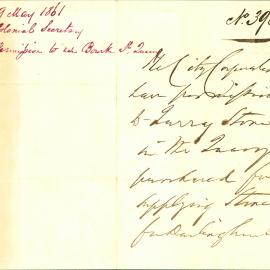 9 May 1861
Colonial Secretary
Permission to use Bourk St. Quarry
No. 39
The City Corporation
have permission
to Quarry Stone
in the Quarry
purchased for
supplying Stone
for Darlinghurst